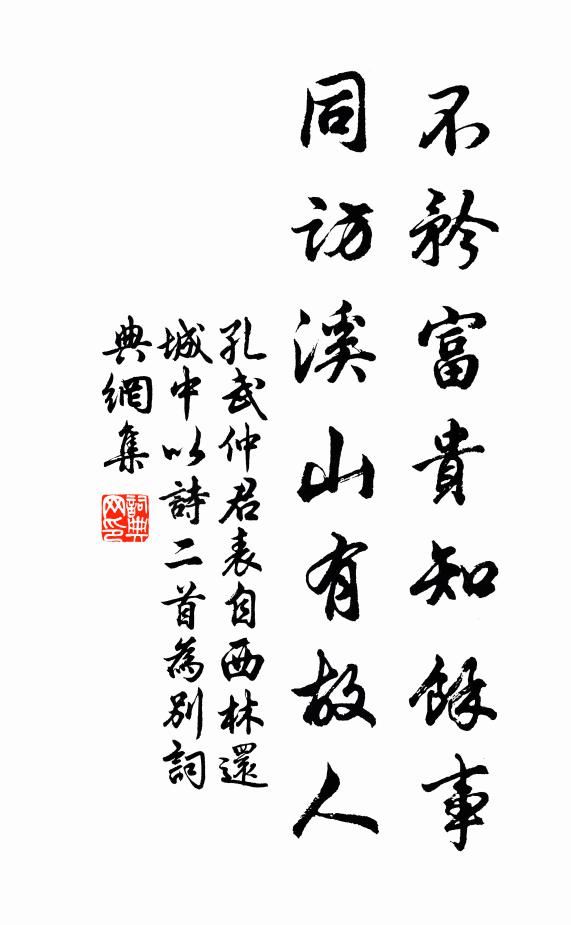 不矜富貴知餘事
同訪溪山有故人
孔武仲君表自西林還
城中以詩二首為別詞
典網集
詞典网印